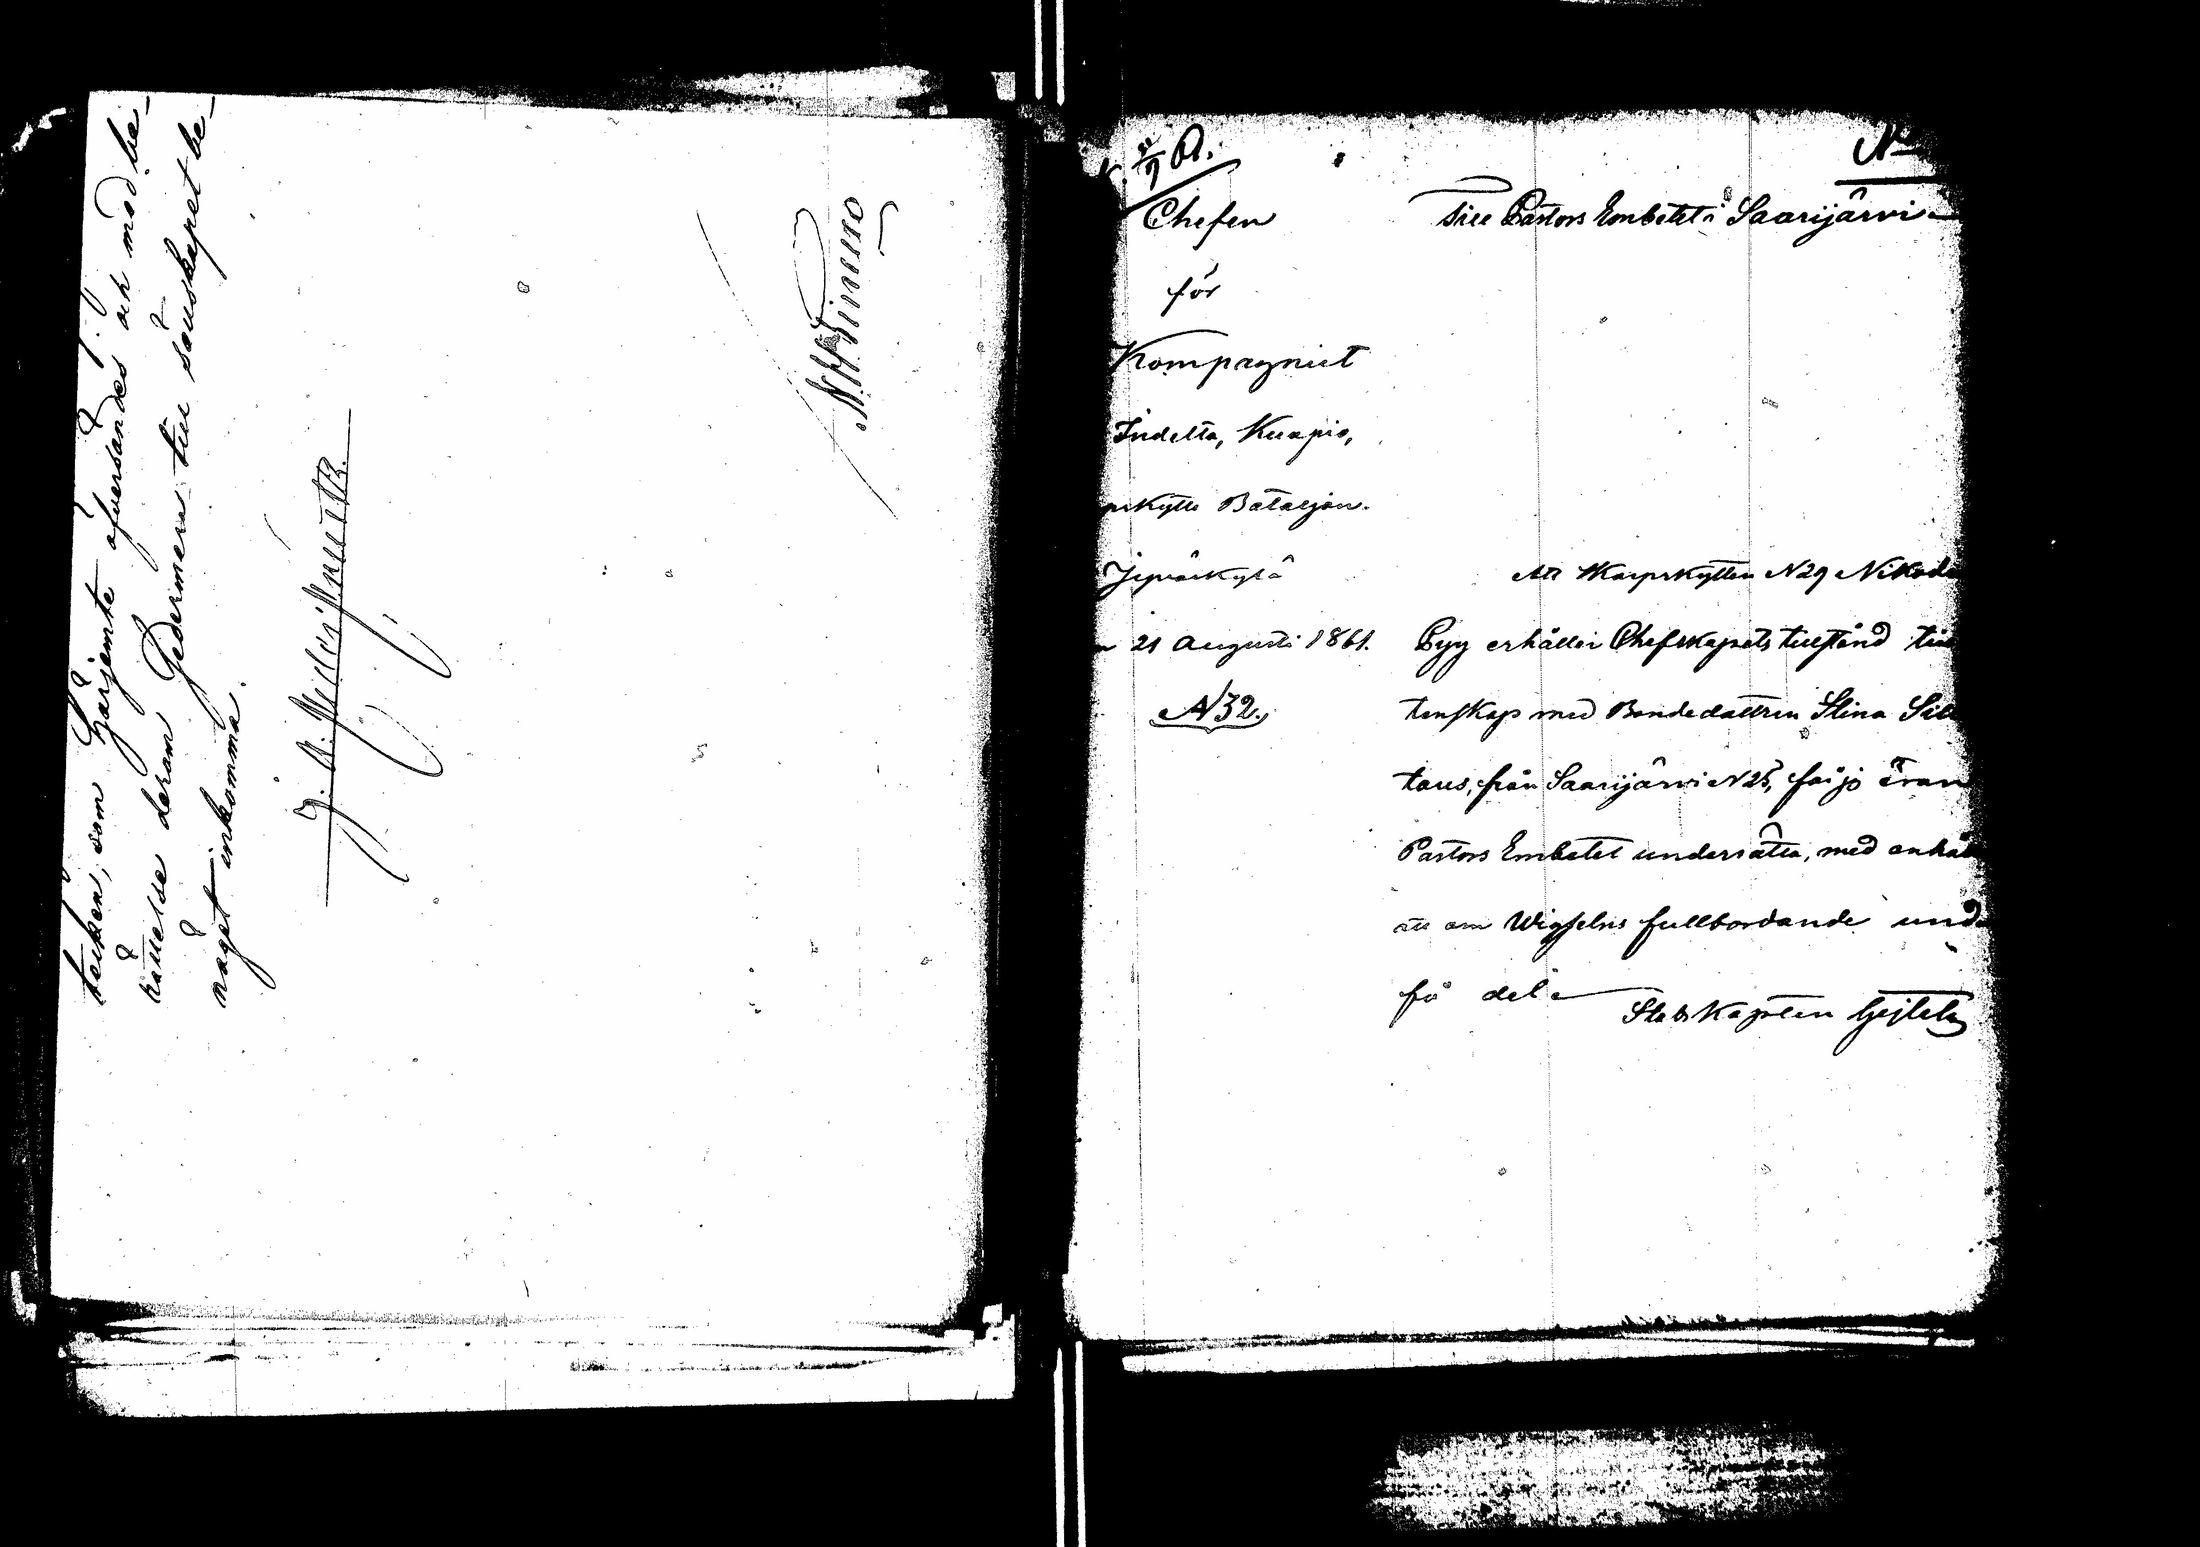 teiken, som härjemte öfversändes och med be-
rättelse derom Gedermera till sällskapet be-
näget inkomma.
Chefen
för
Kompagniet
Indelta, Kuopio,
pskytte Bataljon.
Jyväskylä
21 Augusti 1861.
N 32.
Till Pastors Embetet i Saarijärvi
Att Skarpskytten N 29 Nikode
Pyy erhållit Chefskapets tillstånd till
tenskap med Bondedottren Stina Sill
taus, från Saarijärvi N 25, får jo äran
Pastors Embetet underrätta, med anhål
att om Wigselns fullbordande und
få del.
Stabskapten Gejtel